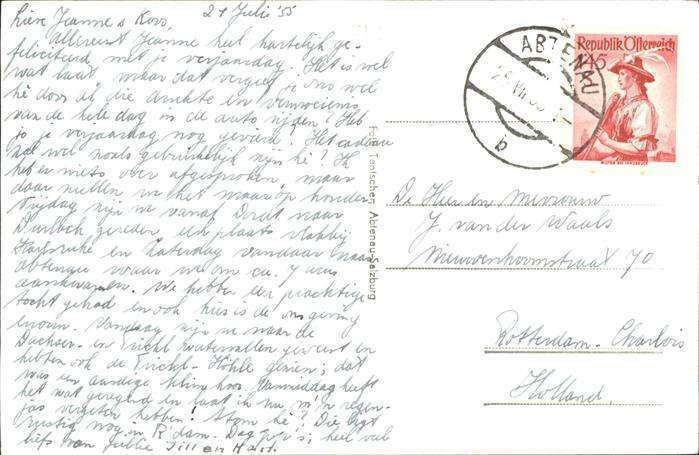 Lieve Jeanne & Koos, 24 Juli '55
Allereerst Jeanne heel hartelijk ge-
feliciteerd met je verjaardag. Het is wel
wat laat maar dat vergeef je ons wel
hè door al die drukte en vermoeienis
van de hele dag in de auto rijden? Heb
je je verjaardag nog gevierd? Het cadeau
zal wel noals gebruikelijk zijn hè? We
hebben niets over afgesproken maar
daar zullen we het maar op houden.
Vrijdag zijn we vanaf Dordt naar
Durlach gereden, een plaats vlakbij
Karlsruhe en Zaterdag vandaar naar
Abtenau waar we om ca. 7 uur
aankwamen. We hebben een prachtige
tocht gehad en ook hier is de omgeving
enorm. Vandaag zijn we naar de
Dachser- en watervallen geweest en
hebben ook de Höhle gezien; dat
was een aardige klim hoor. Vanmiddag heeft
het wat geregend en laat ik nu m'n regen-
jas vergeten hebben! Stom hè? Die ligt
rustig nog in R'dam. Dag, heel veel
liefs van jullie Jill en Hans.
Foto Tonischen, Abtenau-Salzburg
ABTENAU
b
Republik Österreich
1.45
De Heer en Mevrouw
J. van der Waals
Nieuwenhoornstraat 70
Rotterdam-Charlois
Holland.